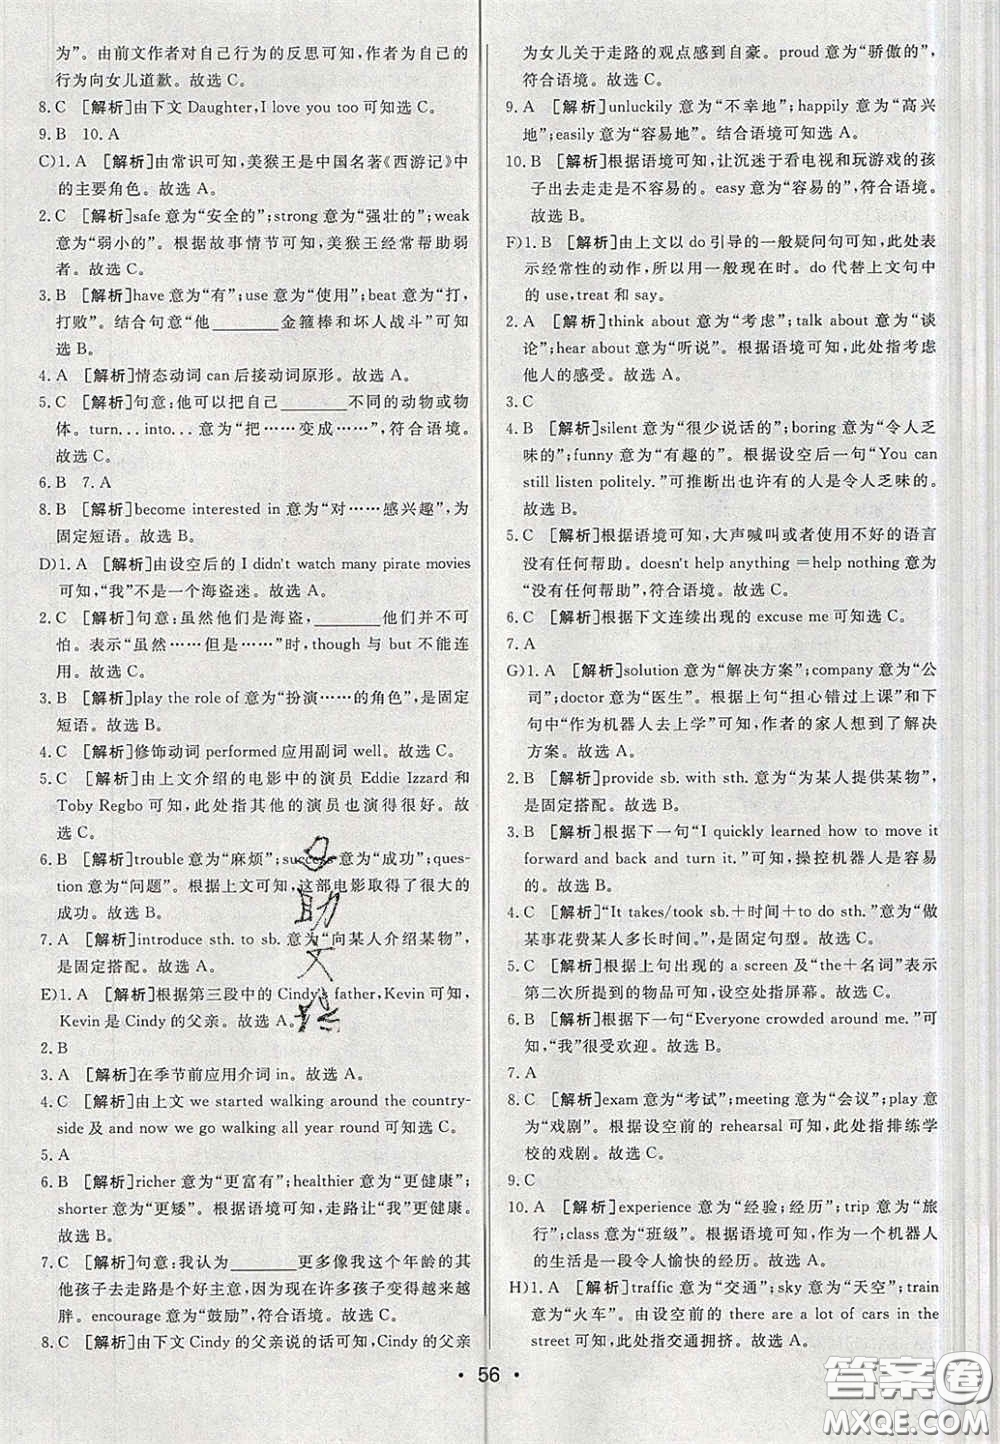 为”。由前文作者对自己行为的反思可知,作者为自己的
行为向女儿道歉。故选 C。
8. C [解析]由下文 Daughter, I love you too 可知选 C。
9. B 10. A
C)1. A [解析]由常识可知,美猴王是中国名著《西游记》中
的主要角色。故选 A。
2. C [解析]safe 意为“安全的”;strong 意为“强壮的”;weak
意为“弱小的”。根据故事情节可知,美猴王经常帮助弱
者。故选 C。
3. B [解析]have 意为“有”;use 意为“使用”;beat 意为“打,
打败”。结合句意“他________金箍棒和坏人战斗”可知
选 B。
4. A [解析]情态动词 can 后接动词原形。故选 A。
5. C [解析]句意:他可以把自己________不同的动物或物
体。turn... into... 意为“把……变成……”,符合语境。
故选 C。
6. B 7. A
8. B [解析]become interested in 意为“对……感兴趣”,为
固定短语。故选 B。
D)1. A [解析]由设空后的 I didn't watch many pirate movies
可知,“我”不是一个海盗迷。故选 A。
2. C [解析]句意:虽然他们是海盗,________他们并不可
怕。表示“虽然……但是……”时,though 与 but 不能连
用。故选 C。
3. B [解析]play the role of 意为“扮演……的角色”,是固定
短语。故选 B。
4. C [解析]修饰动词 performed 应用副词 well。故选 C。
5. C [解析]由上文介绍的电影中的演员 Eddie Izzard 和
Toby Regbo 可知,此处指其他的演员也演得很好。故
选 C。
6. B [解析]trouble 意为“麻烦”;success 意为“成功”;ques-
tion 意为“问题”。根据上文可知,这部电影取得了很大的
成功。故选 B。
7. A [解析]introduce sth. to sb. 意为“向某人介绍某物”,
是固定搭配。故选 A。
E)1. A [解析]根据第三段中的 Cindy's father, Kevin 可知,
Kevin 是 Cindy 的父亲。故选 A。
2. B
3. A [解析]在季节前应用介词 in。故选 A。
4. C [解析]由上文 we started walking around the country-
side 及 and now we go walking all year round 可知选 C。
5. A
6. B [解析]richer 意为“更富有”;healthier 意为“更健康”;
shorter 意为“更矮”。根据语境可知,走路让“我”更健康。
故选 B。
7. C [解析]句意:我认为________更多像我这个年龄的其
他孩子去走路是个好主意,因为现在许多孩子变得越来越
胖。encourage 意为“鼓励”,符合语境。故选 C。
8. C [解析]由下文 Cindy 的父亲说的话可知,Cindy 的父亲
为女儿关于走路的观点感到自豪。proud 意为“骄傲的”,
符合语境。故选 C。
9. A [解析]unluckily 意为“不幸地”;happily 意为“高兴
地”;easily 意为“容易地”。结合语境可知选 A。
10. B [解析]根据语境可知,让沉迷于看电视和玩游戏的孩
子出去走走是不容易的。easy 意为“容易的”,符合语境。
故选 B。
F)1. B [解析]由上文以 do 引导的一般疑问句可知,此处表
示经常性的动作,所以用一般现在时。do 代替上文句中
的 use, treat 和 say。
2. A [解析]think about 意为“考虑”;talk about 意为“谈
论”;hear about 意为“听说”。根据语境可知,此处指考虑
他人的感受。故选 A。
3. C
4. B [解析]silent 意为“很少说话的”;boring 意为“令人乏
味的”;funny 意为“有趣的”。根据设空后一句“You can
still listen politely.”可推断出也许有的人是令人乏味的。
故选 B。
5. C [解析]根据语境可知,大声喊叫或者使用不好的语言
没有任何帮助。doesn't help anything＝help nothing 意为
“没有任何帮助”,符合语境。故选 C。
6. C [解析]根据下文连续出现的 excuse me 可知选 C。
7. A
G)1. A [解析]solution 意为“解决方案”;company 意为“公
司”;doctor 意为“医生”。根据上句“担心错过上课”和下
句中“作为机器人去上学”可知,作者的家人想到了解决
方案。故选 A。
2. B [解析]provide sb. with sth. 意为“为某人提供某物”,
是固定搭配。故选 B。
3. B [解析]根据下一句“I quickly learned how to move it
forward and back and turn it.”可知,操控机器人是容易
的。故选 B。
4. C [解析]“It takes/took sb.＋时间＋to do sth.”意为“做
某事花费某人多长时间。”,是固定句型。故选 C。
5. C [解析]根据上句出现的 a screen 及“the＋名词”表示
第二次所提到的物品可知,设空处指屏幕。故选 C。
6. B [解析]根据下一句“Everyone crowded around me.”可
知,“我”很受欢迎。故选 B。
7. A
8. C [解析]exam 意为“考试”;meeting 意为“会议”;play 意
为“戏剧”。根据设空前的 rehearsal 可知,此处指排练学
校的戏剧。故选 C。
9. C
10. A [解析]experience 意为“经验;经历”;trip 意为“旅
行”;class 意为“班级”。根据语境可知,作为一个机器人
的生活是一段令人愉快的经历。故选 A。
H)1. A [解析]traffic 意为“交通”;sky 意为“天空”;train
意为“火车”。由设空前的 there are a lot of cars in the
street 可知,此处指交通拥挤。故选 A。
• 56 •
答案圈
MXQE.COM